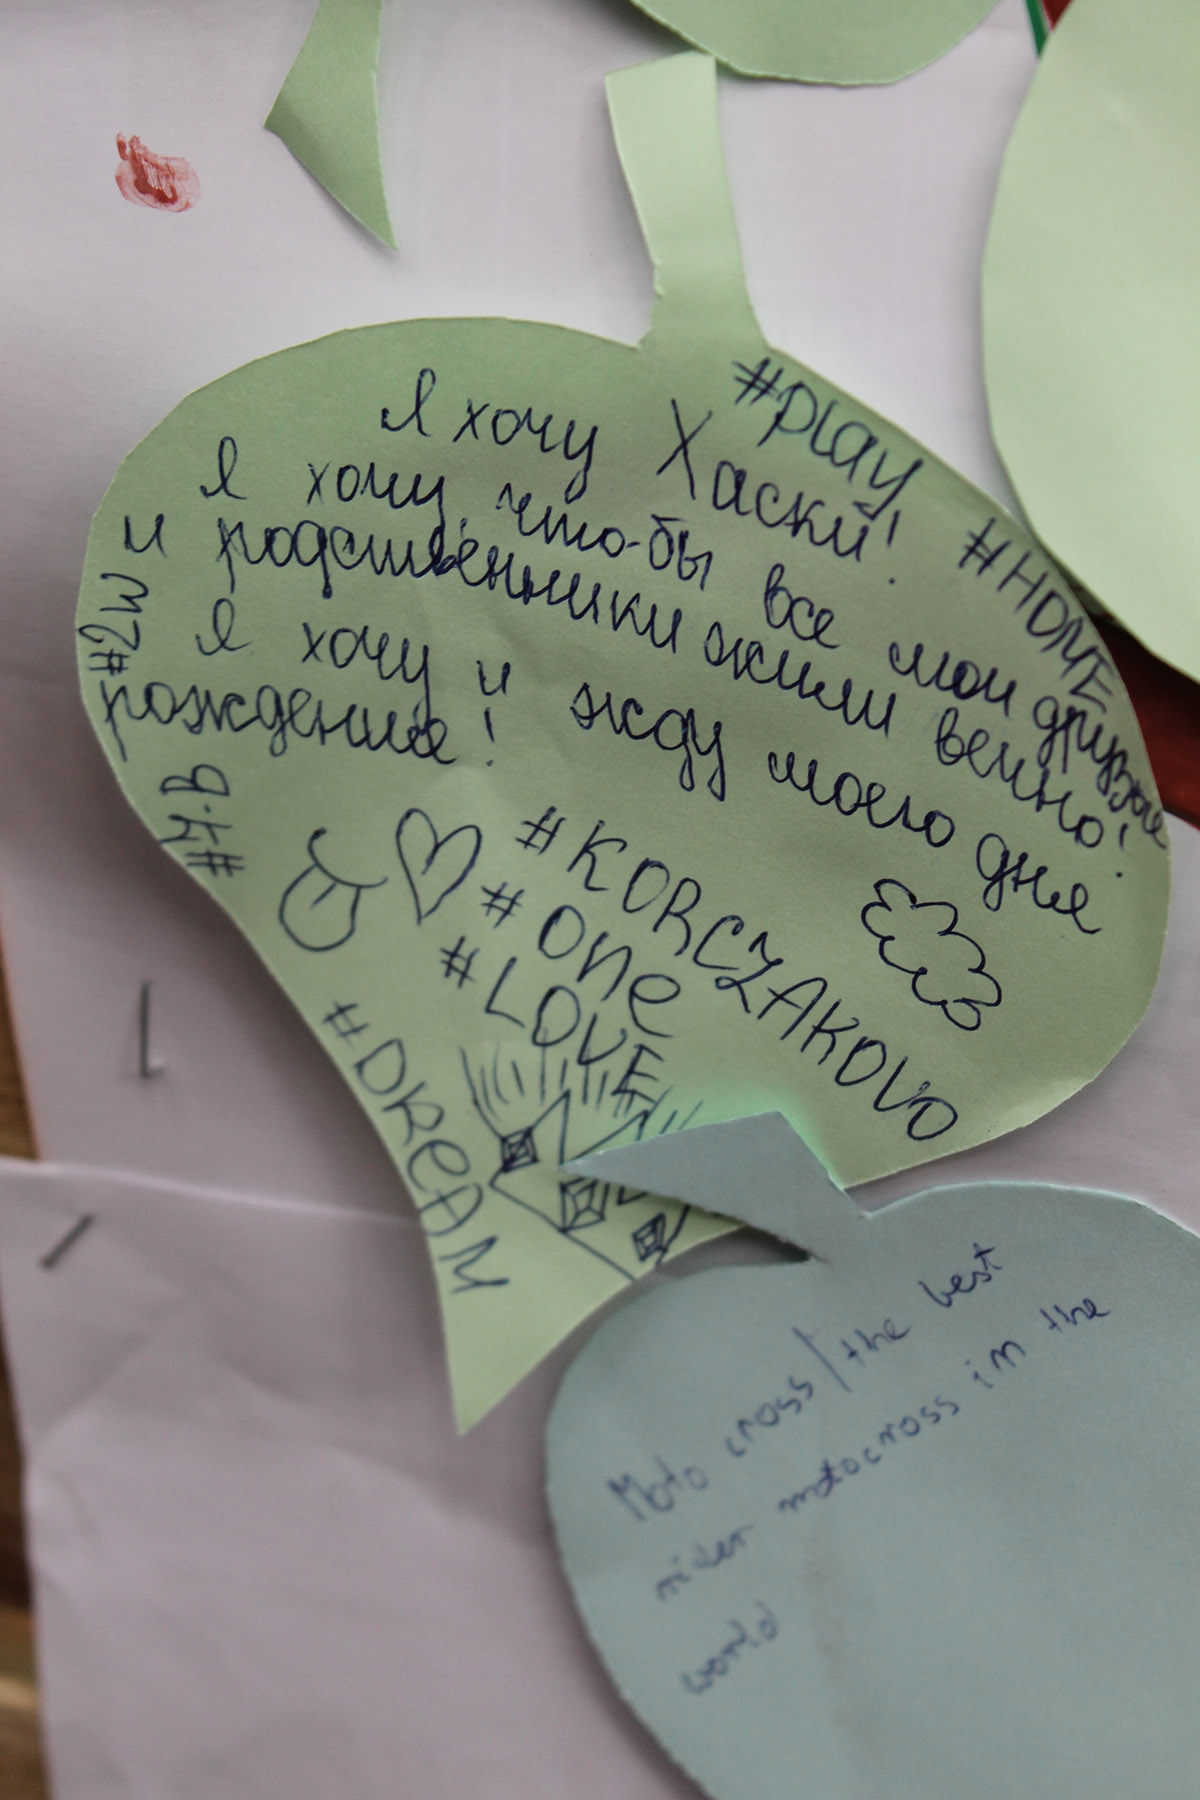 #play
Я хочу Хаски!
#HOME
Я хочу, что-бы все мои друзья
и родственники жили вечно!
#2W
Я хочу и жду моего дня
рождения!
#KORCZAKOVO
#One
#LOVE
#DReAM
Moto cross/the best
rider motocross in the
world